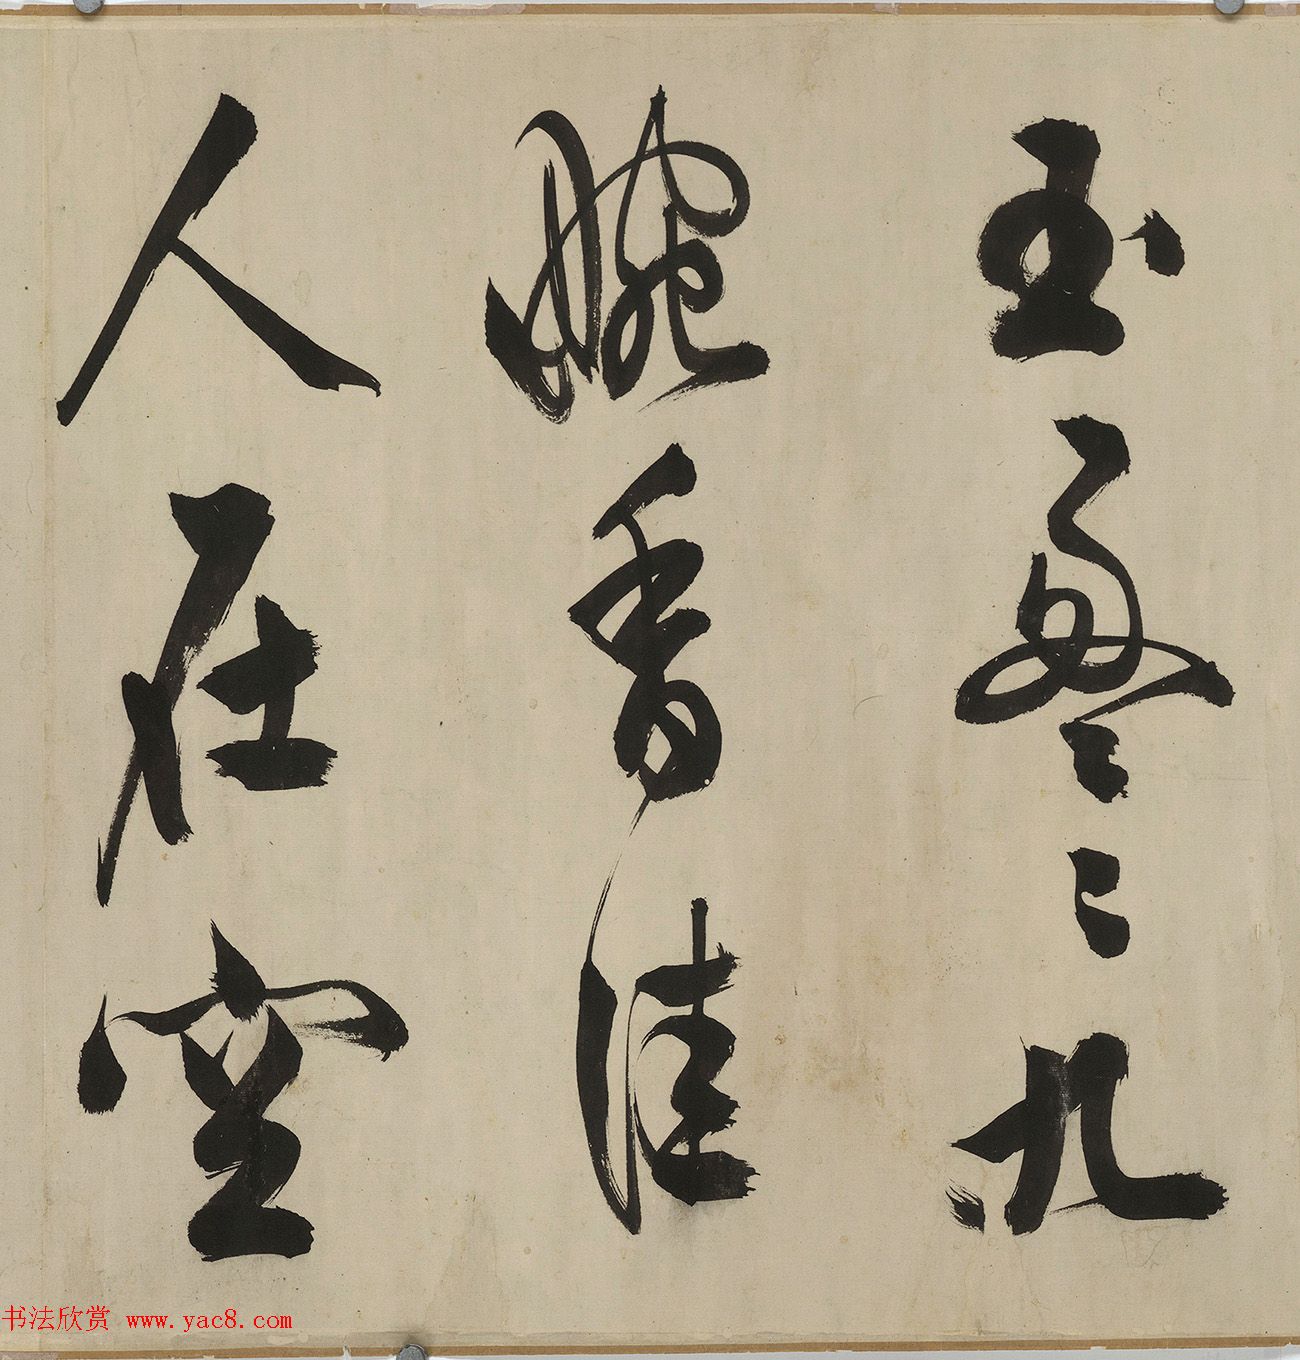 玉盈々九
畹香佳
人在空
书法欣赏 www.yac8.com